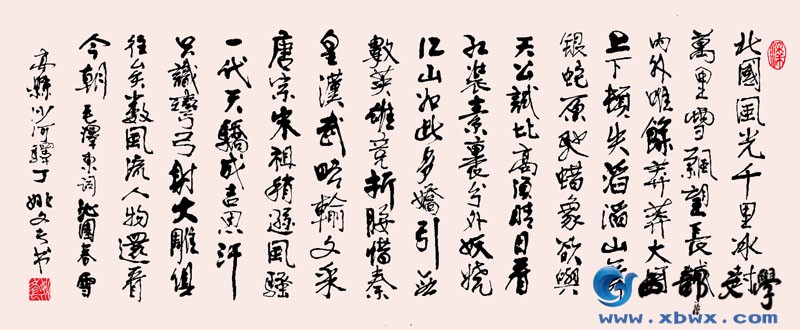 北國風光千里冰封
萬里雪飄望長城
内外唯餘莽莽大河
上下頓失滔滔山舞
銀蛇原馳蜡象欲與
天公試比高須晴日看
紅裝素裹分外妖嬈
江山如此多嬌引無
數英雄竞折腰惜秦
皇漢武略輸文采
唐宗宋祖稍遜風騷
一代天驕成吉思汗
只識彎弓射大雕俱
往矣数風流人物還看
今朝 毛澤東词 沁園春雪
沙河驛
西部文學
www.xbwx.com